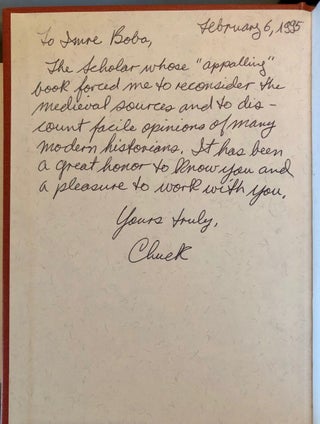 February 6, 1995
To Imre Boba,
The Scholar whose "appalling"
book forced me to reconsider the
medieval sources and to dis-
count facile opinions of many
modern historians. It has been
a great honor to know you and
a pleasure to work with you.
Yours truly,
Chuck